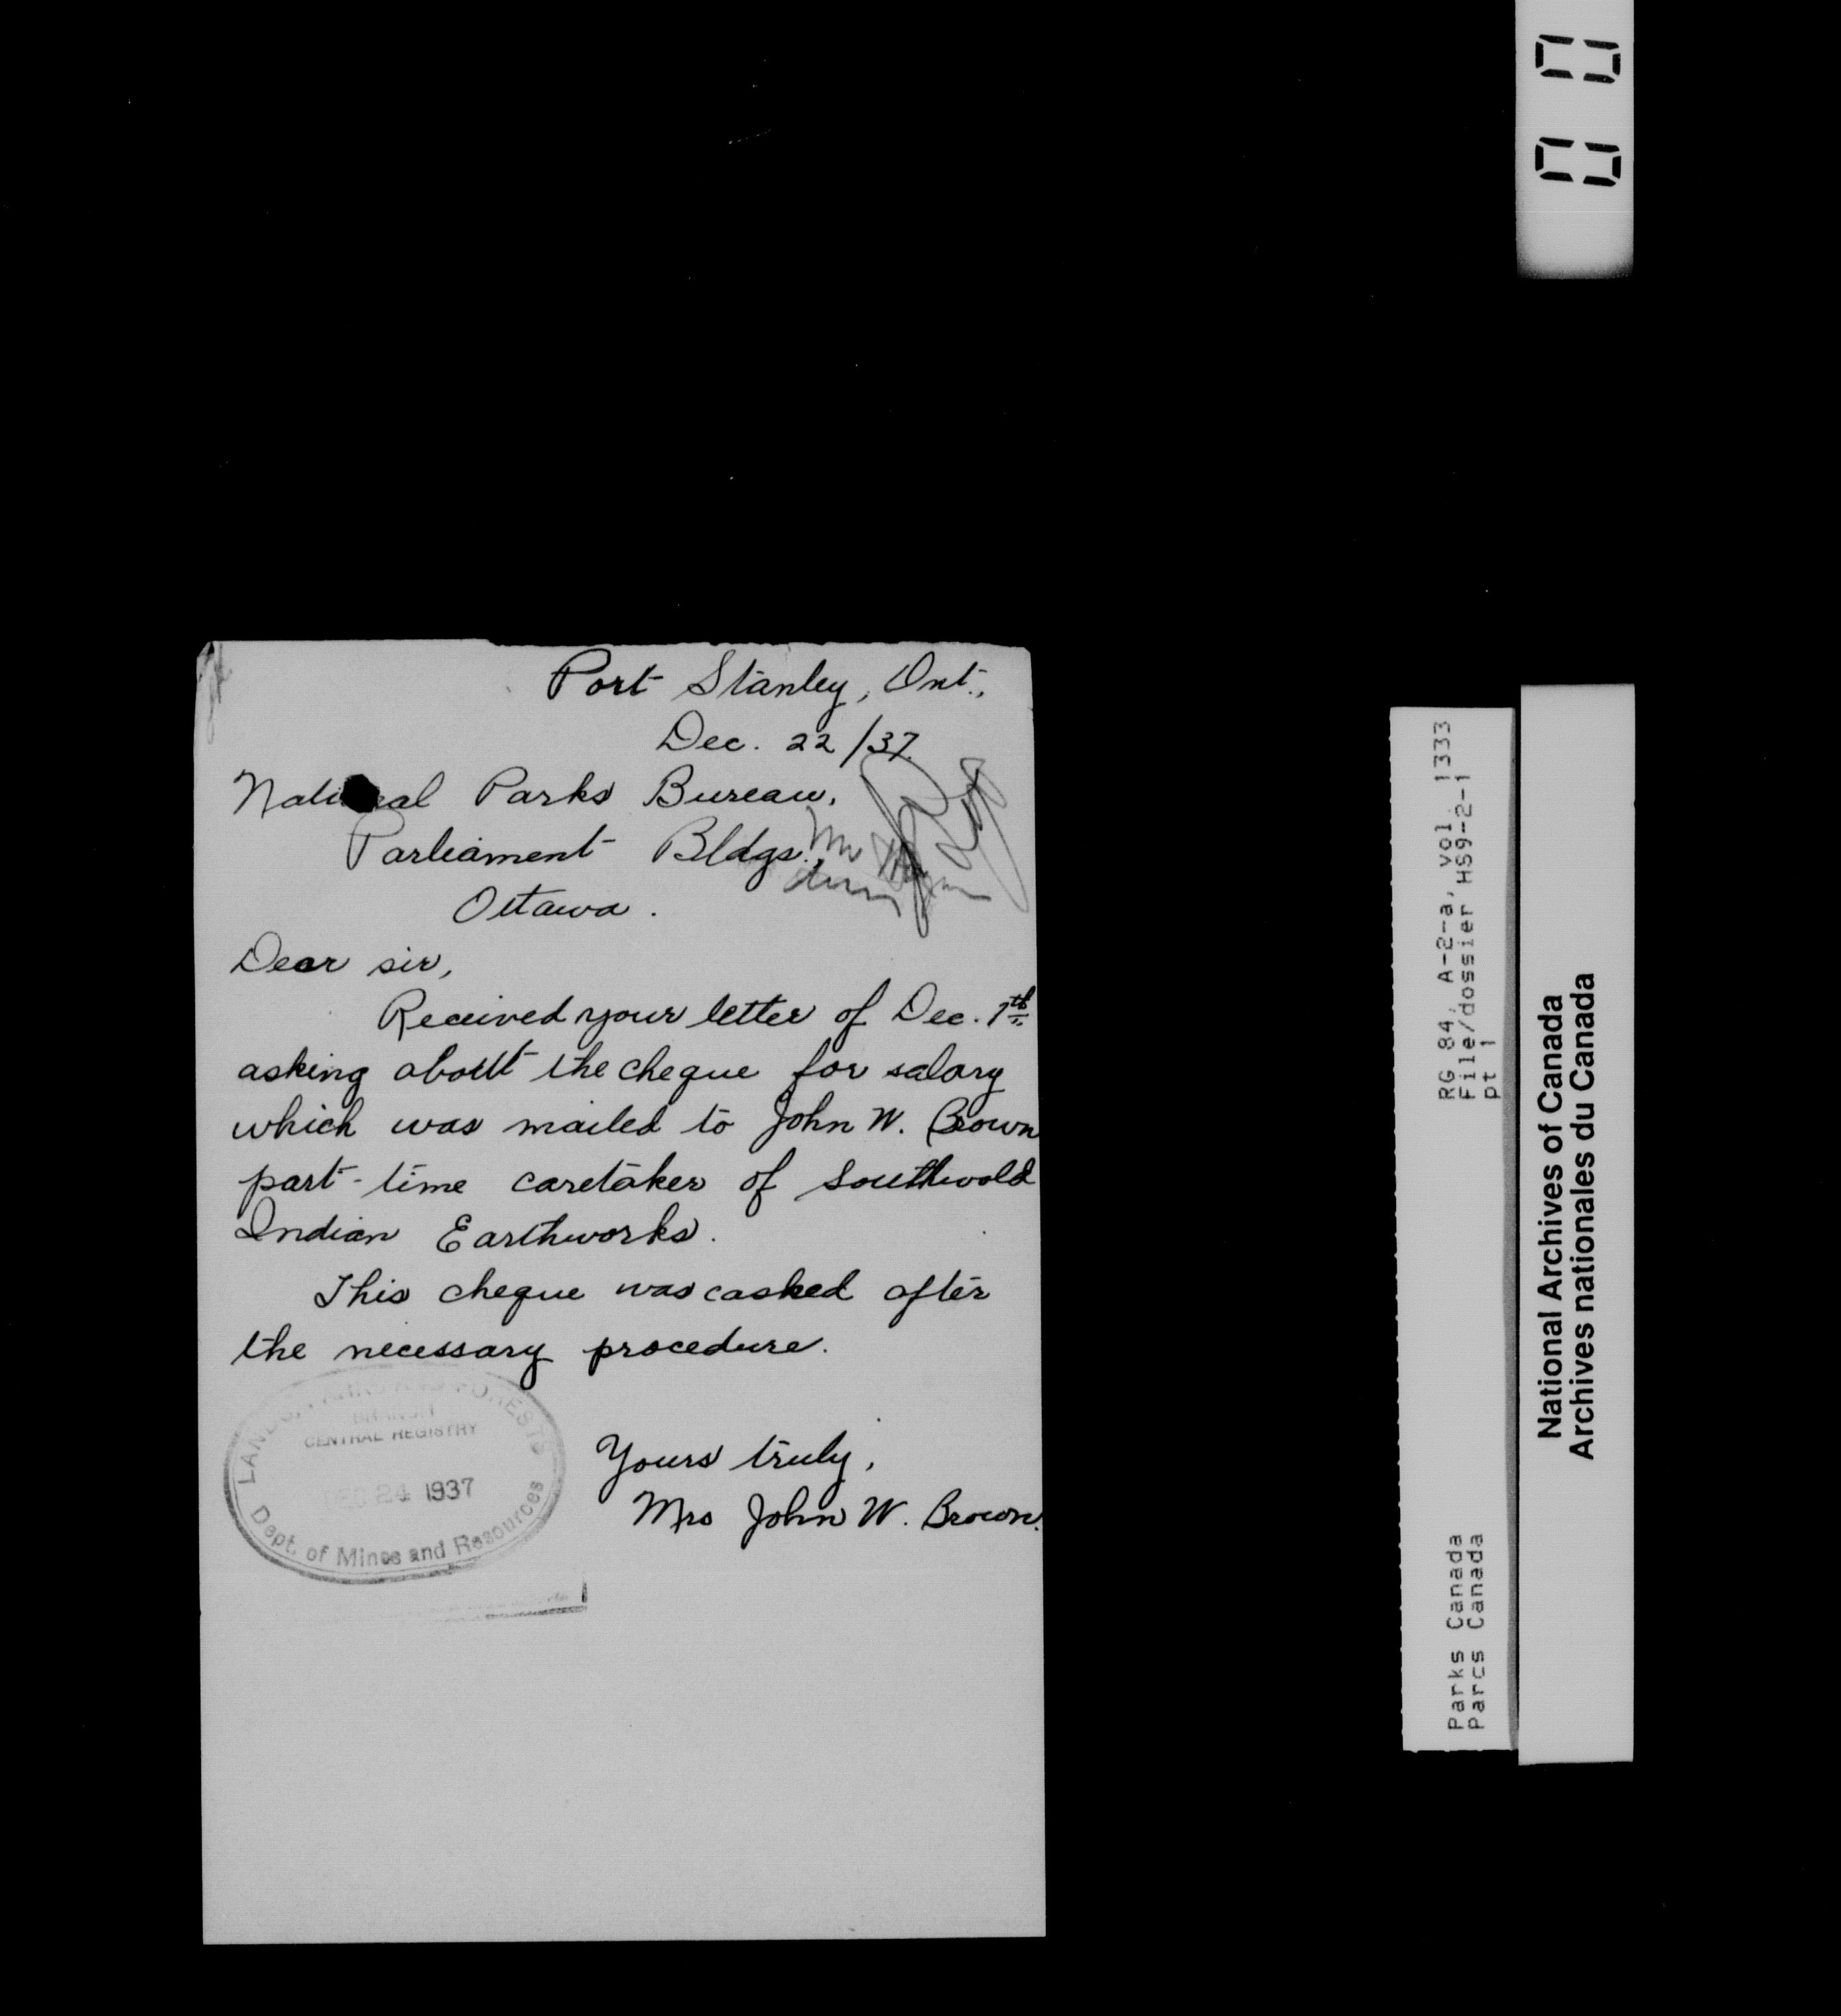 Port Stanley, Ont.,
Dec. 22/37.
National Parks Bureau,
Parliament Bldgs.,
Ottawa.
Dear sir,
Received your letter of Dec. 7th
asking about the cheque for salary
which was mailed to John W. Brown
part-time caretaker of Southwold
Indian Earthworks.
This cheque was cashed after
the necessary procedure.
Yours truly,
Mrs John W. Brown.
LANDS, PARKS AND FORESTS
BRANCH
CENTRAL REGISTRY
DEC 24 1937
Dept. of Mines and Resources
RG 84, A-2-a, vol. 1333
File/dossier HS9-2-1
pt 1
Parks Canada
Parcs Canada
National Archives of Canada
Archives nationales du Canada